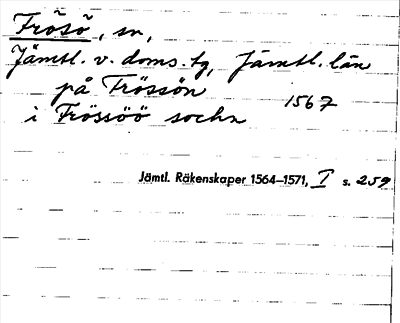 Frösö, sn,
Jämtl. v. doms. tg, Jämtl. län
på Frössön 1567
i Frössöö sochn
Jämtl. Räkenskaper 1564–1571, I s. 259